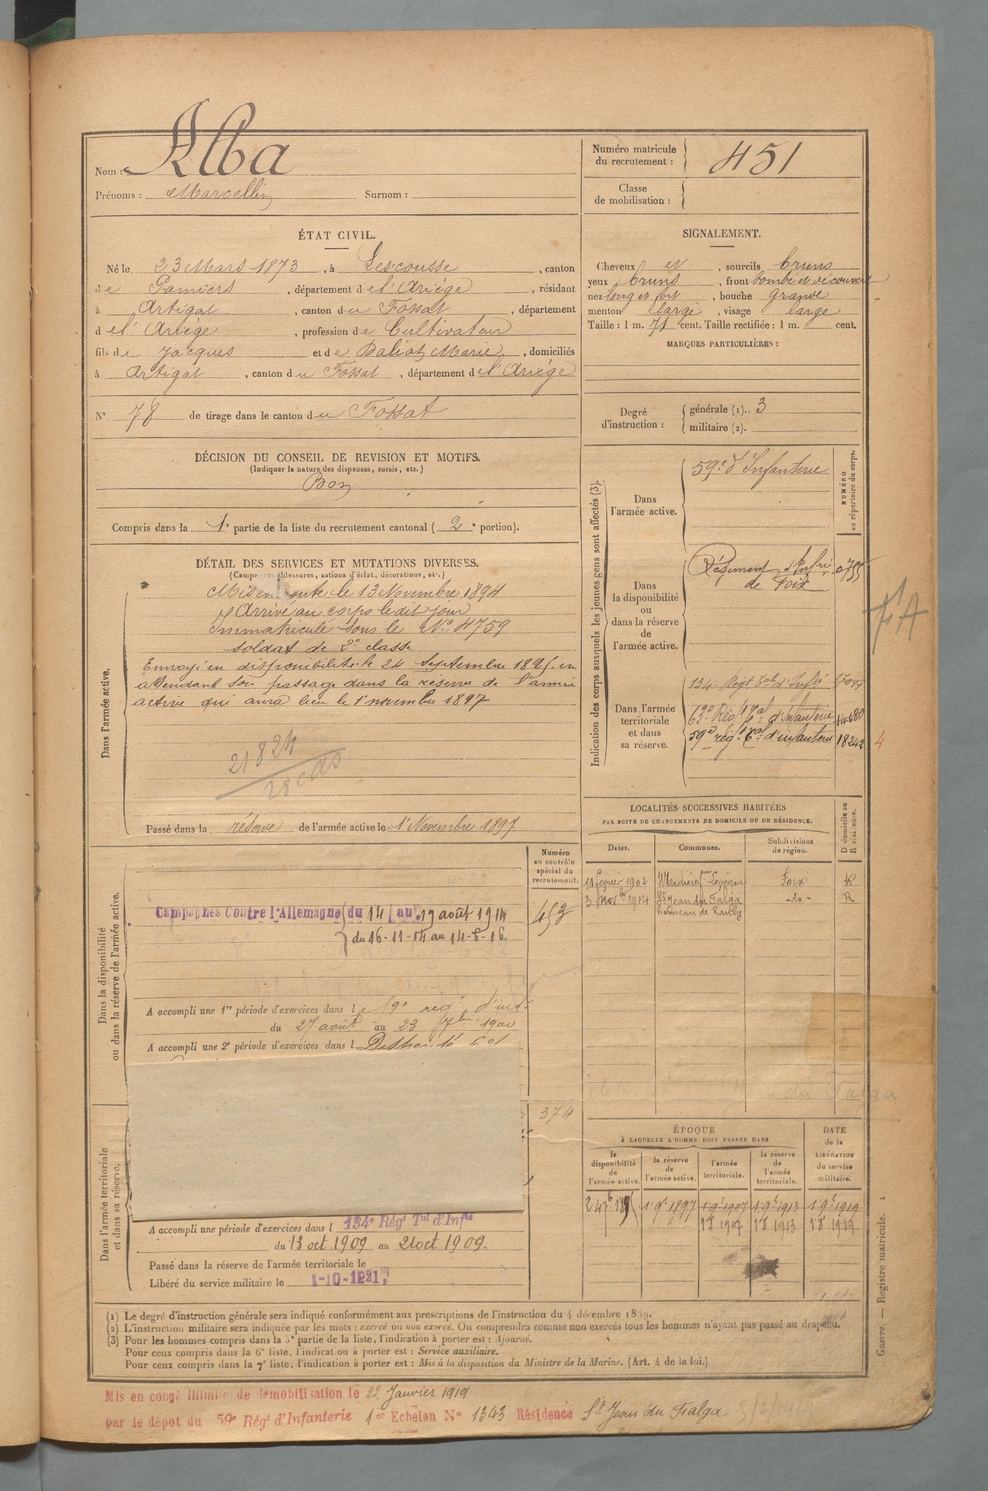 Nom : Alba
Prénoms : Marcellin Surnom :
Numéro matricule du recrutement : 451
Classe de mobilisation :
ÉTAT CIVIL.
Né le 23 Mars 1873, à Lescousse, canton
de Pamiers, département de l'Ariège, résidant
à Artigat, canton du Fossat, département
de l'Ariège, profession de Cultivateur
fils de Jacques et de Marie, domiciliés
à Artigat, canton du Fossat, département de l'Ariège
N° 78 de tirage dans le canton du Fossat
SIGNALEMENT.
Cheveux et, sourcils bruns
yeux bruns, front bombé et découvert
nez long et fort, bouche grande
menton large, visage large
Taille : 1 m. 71 cent. Taille rectifiée : 1 m. cent.
MARQUES PARTICULIÈRES :
Degré d'instruction : générale (1).. 3
militaire (2).
DÉCISION DU CONSEIL DE REVISION ET MOTIFS.
(Indiquer la nature des dispenses, sursis, etc.)
Bon
Compris dans la 1e partie de la liste du recrutement cantonal ( 2e portion).
DÉTAIL DES SERVICES ET MUTATIONS DIVERSES.
(Campagnes, blessures, actions d'éclat, décorations, etc.)
Dans l'armée active.
Mis en route le 13 Novembre 1894
Arrivé au corps le dit jour
Immatriculé sous le N° 4759
soldat de 2e classe
Envoyé en disponibilité le 24 Septembre 1895 en
attendant son passage dans la réserve de l'armée
active qui aura lieu le 1 novembre 1897
21824
Passé dans la réserve de l'armée active le 1 Novembre 1897
Indication des corps auxquels les jeunes gens sont affectés (3).
NUMÉRO au répertoire du corps.
Dans l'armée active.
59e d'Infanterie
Dans la disponibilité ou dans la réserve de l'armée active.
Régiment d'Infrie de Foix 0755
Dans l'armée territoriale et dans sa réserve.
134e Regt Tal d'Infie
63e Régt Tal d'infanterie
59e régt Tal d'infanterie 18242
LOCALITÉS SUCCESSIVES HABITÉES
PAR SUITE DE CHANGEMENTS DE DOMICILE OU DE RÉSIDENCE.
Dates. Communes. Subdivisions de région. D domicile ou R résidence.
11 février 1902 Foix R
3 Novbre 1914 St Jean du Falga -do- R
Dans la disponibilité ou dans la réserve de l'armée active.
Numéro au contrôle spécial du recrutement.
Campagnes Contre l'Allemagne du 14 au 19 août 1914
du 16-11-14 au 14-8-16.
A accompli une 1re période d'exercices dans l 59e reg d'inf
du 27 août au 23 7bre 1900
A accompli une 2e période d'exercices dans l
374
Dans l'armée territoriale et dans sa réserve.
A accompli une période d'exercices dans l 134e Régt Tal d'Infie
du 13 oct 1909 au 21 oct 1909.
Passé dans la réserve de l'armée territoriale le
Libéré du service militaire le 1-10-1921
ÉPOQUE
A LAQUELLE L'HOMME DOIT PASSER DANS
DATE de la LIBÉRATION du service militaire.
la disponibilité de l'armée active. la réserve de l'armée active. l'armée territoriale. la réserve de l'armée territoriale.
24 7b 1895 1 9b 1897 1 9b 1907 1 9b 1913 1 9b 1919
(1) Le degré d'instruction générale sera indiqué conformément aux prescriptions de l'instruction du 4 décembre 1889.
(2) L'instruction militaire sera indiquée par les mots : exercé ou non exercé. On comprendra comme non exercés tous les hommes n'ayant pas passé au drapeau.
(3) Pour les hommes compris dans la 5e partie de la liste, l'indication à porter est : Ajourné.
Pour ceux compris dans la 6e liste, l'indication à porter est : Service auxiliaire.
Pour ceux compris dans la 7e liste, l'indication à porter est : Mis à la disposition du Ministre de la Marine. (Art. 4 de la loi.)
Guerre. — Registre matricule. 1
Mis en congé illimité de démobilisation le 22 Janvier 1919
par le dépôt du 59e Régt d'Infanterie 1er Echelon N° 1343 Résidence St Jean du Falga